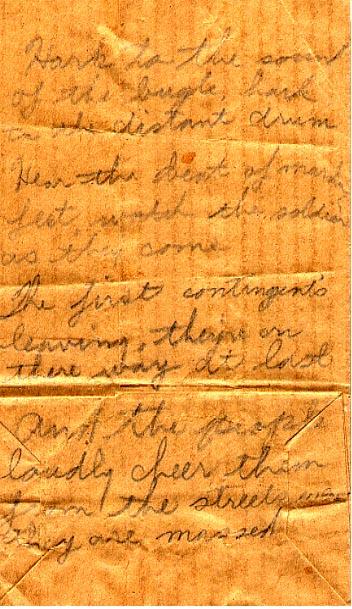 Hark to the sound
of the bugle, hark
to the distant drum
Hear the beat of marching
feet, watch the soldiers
as they come
The first contingents
leaving, there on
there way at last
And the people
loudly cheer them
from the streets where
they are massed